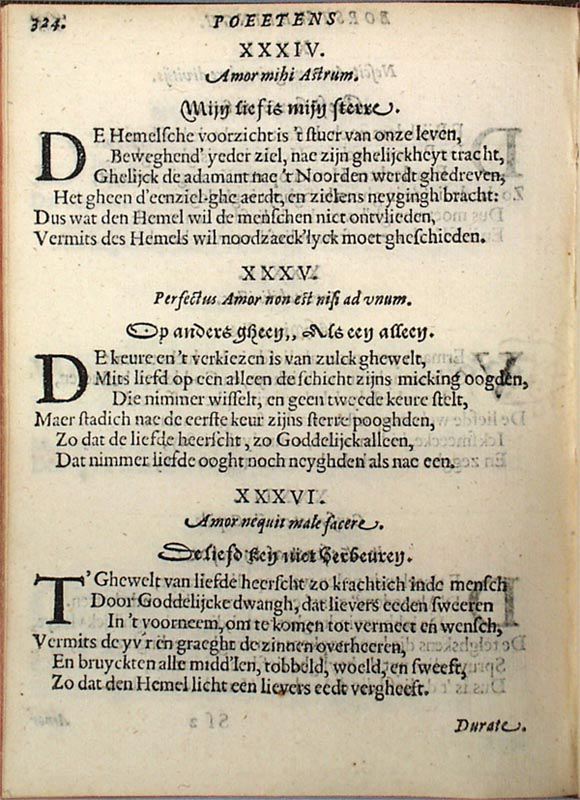 324. POEETENS
XXXIV.
Amor mihi Astrum.
Mijn lief is mijn sterre.
DE Hemelsche voorzicht is 't stuer van onze leven,
Beweghend' yeder ziel, nae zijn ghelijckheyt tracht,
Ghelijck de adamant nae 't Noorden werdt ghedreven,
Het gheen d'eenziel-ghe aerdt, en zielens neygingh bracht:
Dus wat den Hemel wil de menschen niet ontvlieden,
Vermits des Hemels wil noodzaeck'lyck moet gheschieden.
XXXV.
Perfectus Amor non est nisi ad vnum.
Op anders gheen, Als een alleen.
DE keure en 't verkiezen is van zulck ghewelt,
Mits liefd op een alleen de schicht zijns micking ooghden,
Die nimmer wisselt, en geen tweede keure stelt,
Maer stadich nae de eerste keur zijns sterre pooghden,
Zo dat de liefde heerscht, zo Goddelijck alleen,
Dat nimmer liefde ooght noch neyghden als nae een.
XXXVI.
Amor nequit male facere.
De liefd ken niet verbeuren.
T'Ghewelt van liefde heerscht zo krachtich inde mensch
Door Goddelijcke dwangh, dat lievers eeden sweeren
In 't voorneem, om te komen tot vermeet en wensch,
Vermits de yv'r en graeght de zinnen overheeren,
En bruyckten alle midd'len, tobbeld, woeld, en sweeft,
Zo dat den Hemel licht een lievers eedt vergheeft.
Durate.